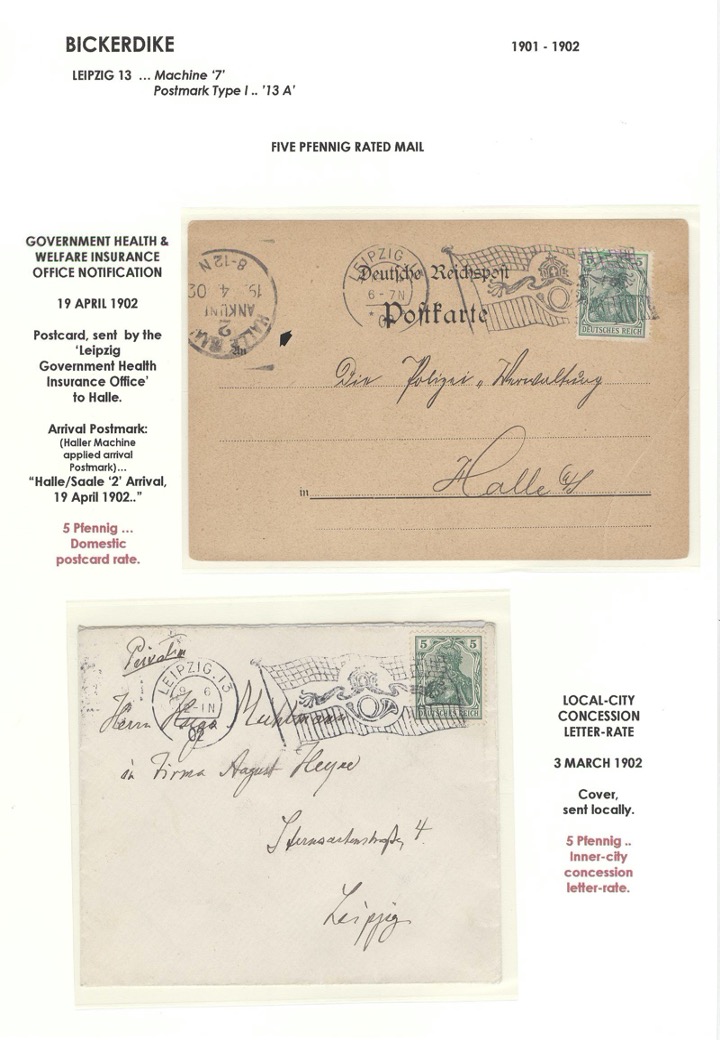 BICKERDIKE
1901 - 1902
LEIPZIG 13 ... Machine ‘7’
Postmark Type I .. ’13 A’
FIVE PFENNIG RATED MAIL
GOVERNMENT HEALTH &
WELFARE INSURANCE
OFFICE NOTIFICATION
19 APRIL 1902
Postcard, sent by the
‘Leipzig
Government Health
Insurance Office’
to Halle.
Arrival Postmark:
(Haller Machine
applied arrival
Postmark)...
“Halle/Saale ‘2’ Arrival,
19 April 1902..”
5 Pfennig ...
Domestic
postcard rate.
8-12 N
19. 4 02
ANKUNFT
2
HALLE
LEIPZIG
6 - 7 N
Deutsche Reichspost
Postkarte
5 5
DEUTSCHES REICH
An
Die Polizei Verwaltung
in Halle a/S
Privatim
LEIPZIG. 13
6
-1N
02
5 5
DEUTSCHES REICH
Herrn Muhlmann
in Firma August Heyne
Sternwartenstraße 4.
Leipzig
LOCAL-CITY
CONCESSION
LETTER-RATE
3 MARCH 1902
Cover,
sent locally.
5 Pfennig ..
Inner-city
concession
letter-rate.